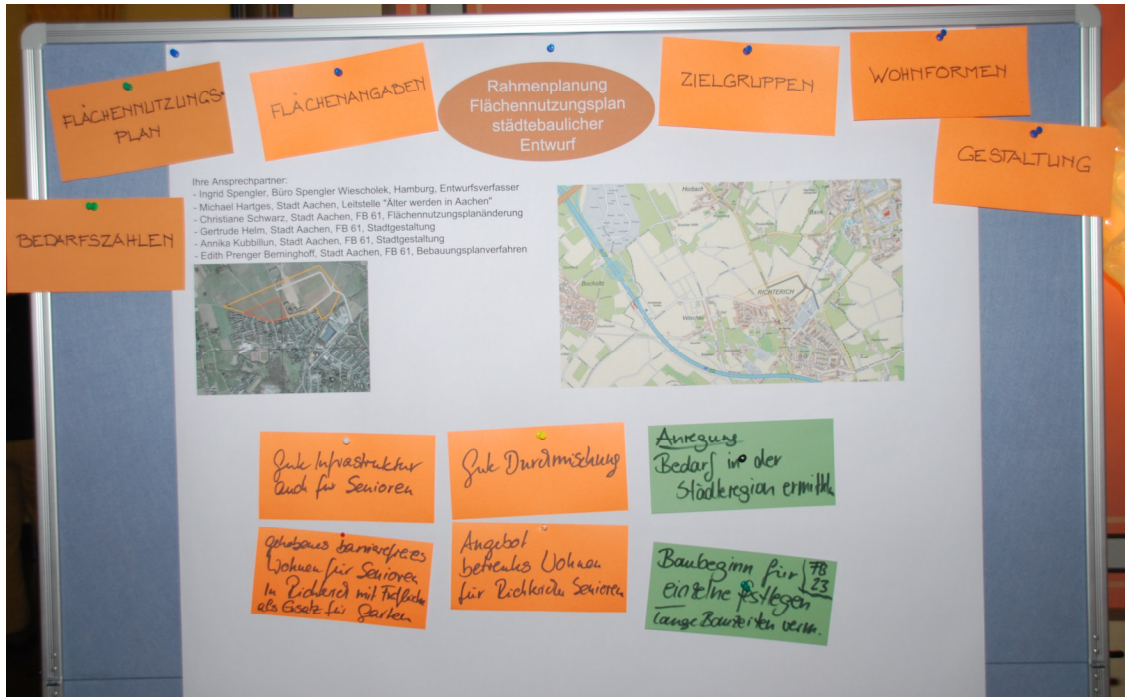 FLÄCHENNUTZUNGS-
PLAN
FLÄCHENANGABEN
Rahmenplanung
Flächennutzungsplan
städtebaulicher
Entwurf
ZIELGRUPPEN
WOHNFORMEN
GESTALTUNG
BEDARFSZAHLEN
Ihre Ansprechpartner:
- Ingrid Spengler, Büro Spengler Wiescholek, Hamburg, Entwurfsverfasser
- Michael Hartges, Stadt Aachen, Leitstelle "Älter werden in Aachen"
- Christiane Schwarz, Stadt Aachen, FB 61, Flächennutzungsplanänderung
- Gertrude Helm, Stadt Aachen, FB 61, Stadtgestaltung
- Annika Kubbillun, Stadt Aachen, FB 61, Stadtgestaltung
- Edith Prenger Berninghoff, Stadt Aachen, FB 61, Bebauungsplanverfahren
Horbach
Bank
Bocholtz
Vetschau
RICHTERICH
Gute Infrastruktur
auch für Senioren
Gute Durchmischung
Anregung
Bedarf in der
Städteregion ermitteln
gehobenes barrierefreies
Wohnen für Senioren
in Richterich mit
als Ersatz für Garten
Angebot
betreutes Wohnen
für Richtericher Senioren
Baubeginn für FB
einzelne festlegen 23
lange Bauzeiten verm.